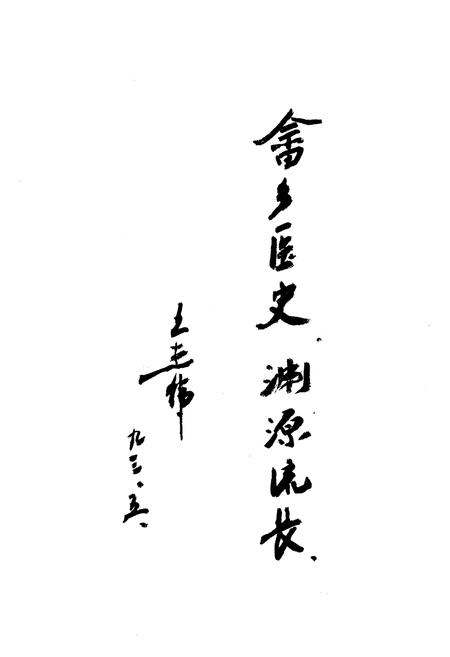 畲乡医史、渊源流长、
王杰伟
九三、五、